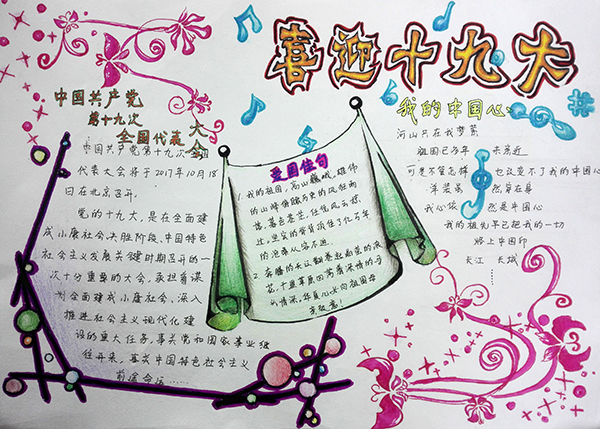 喜迎十九大
中国共产党
第十九次
全国代表
大会
中国共产党第十九次全国
代表大会将于2017年10月18
日在北京召开。
党的十九大,是在全面建
成小康社会决胜阶段、中国特色
社会主义发展关键时期召开的一
次十分重要的大会,承担着谋
划全面建成小康社会,深入
推进社会主义现代化建
设的重大任务,事关党和国家事业继
往开来,事关中国特色社会主义
前途命运……
爱国佳句
1. 我的祖国,高山巍峨,雄伟
的山峰俯瞰历史的风狂雨
落,暮色苍茫,任凭风云掠
过。坚实的脊背顶住了亿万年
的沧桑从容不迫。
2. 奔腾的长江翻卷起
花,十里草原
我的中国心
河山只在我梦萦
祖国已多年未亲近
可是不管怎样也改变不了我的中国心
洋装虽然穿在身
我心依然是中国心
我的祖先早已把我的一切
烙上中国印
长江 长城
……